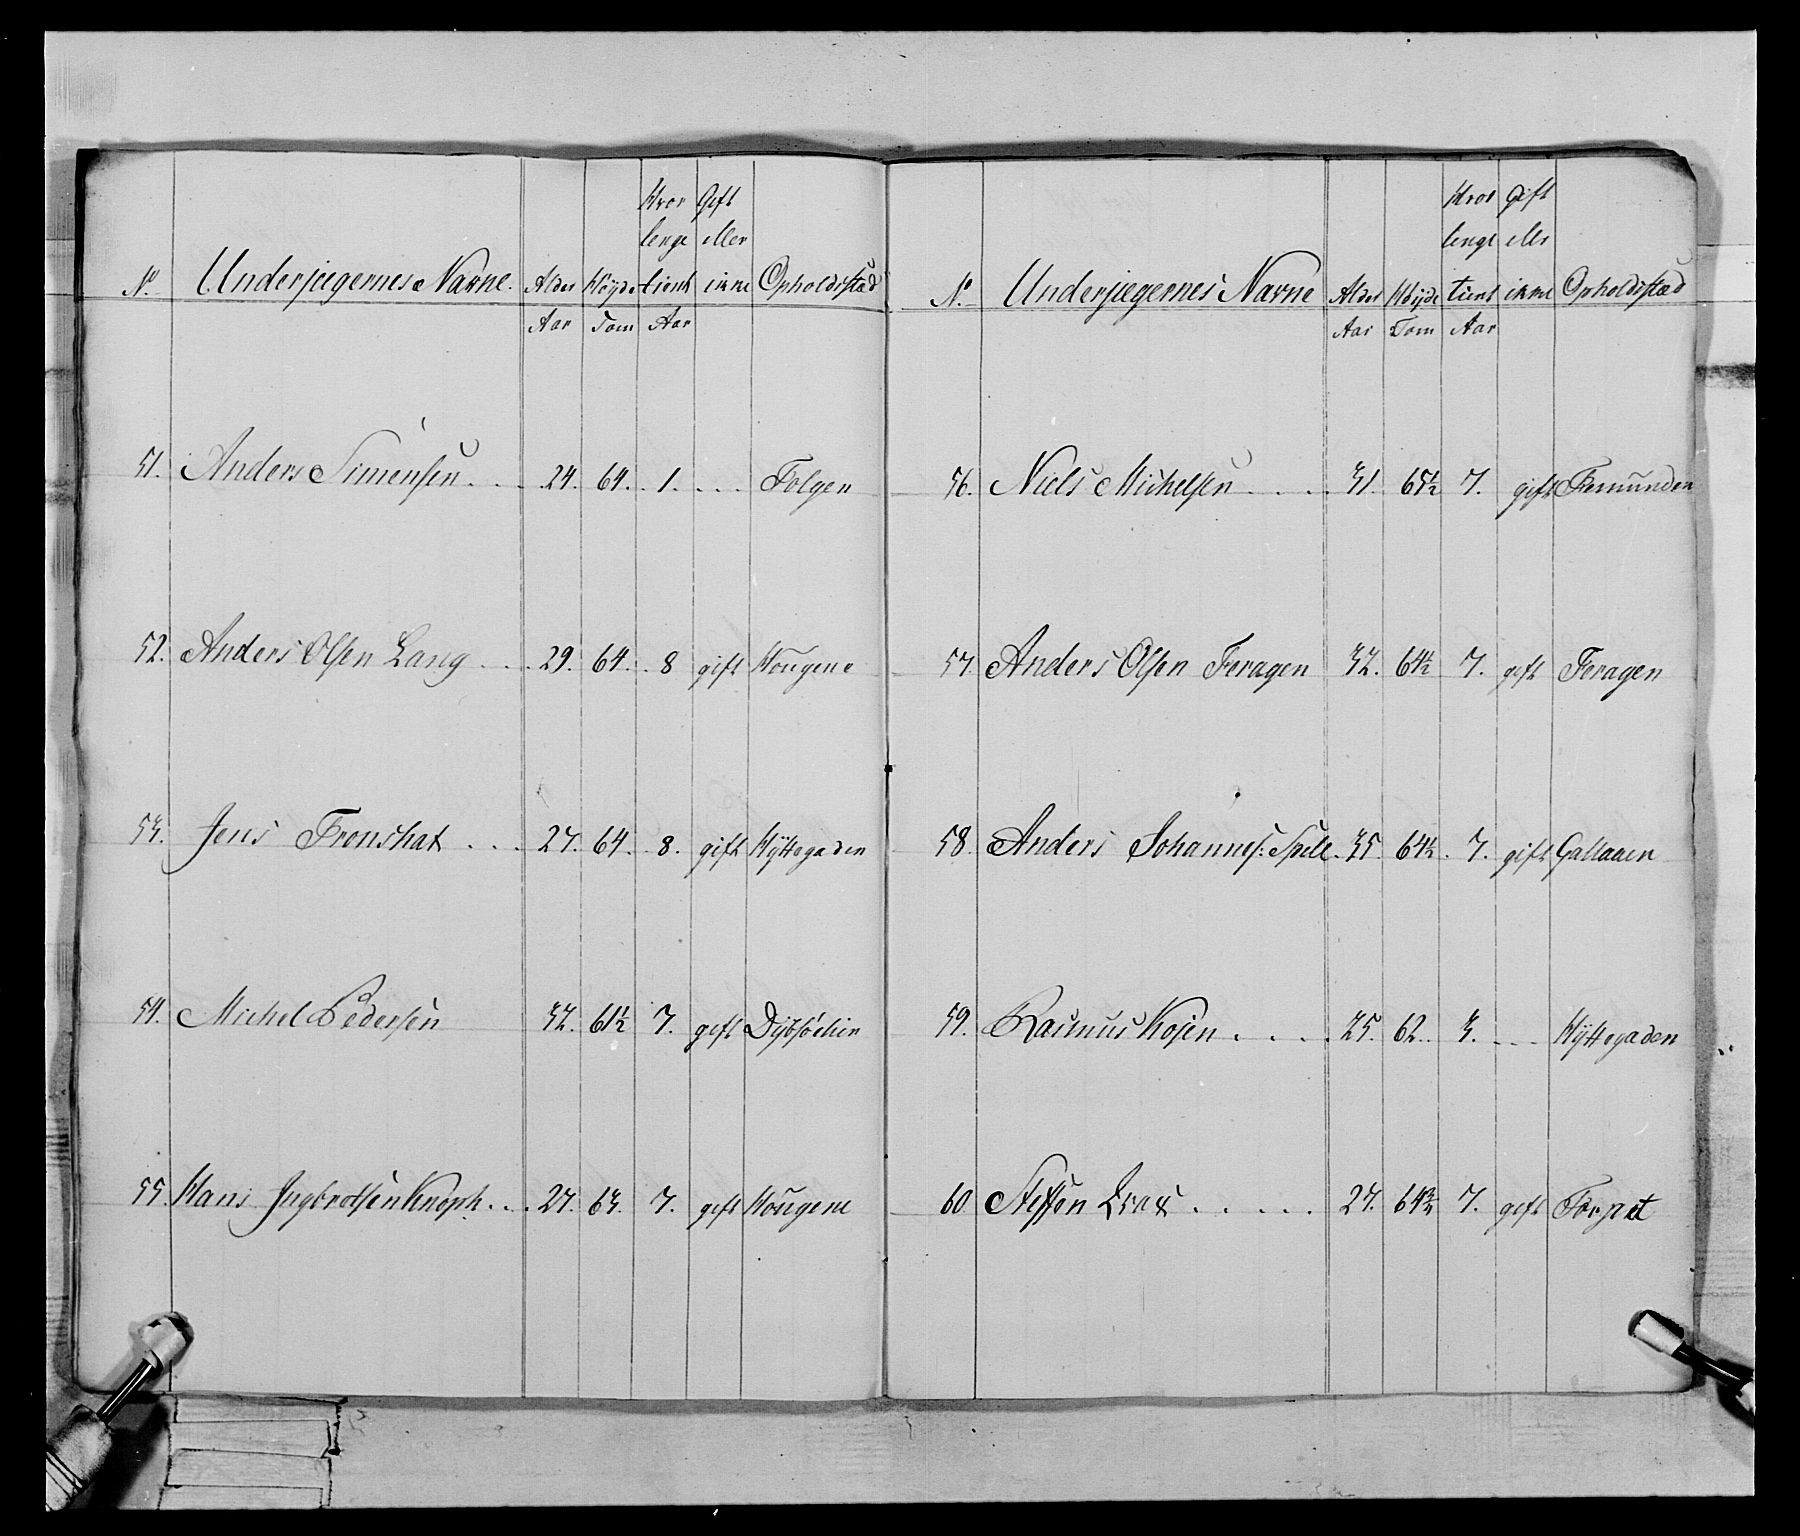 No. Underjægernes Navne. Alder Høyde Hvor lenge tient Gift eller ikke Opholdsstæd
Aar Tom Aar
51. Anders Simensen . . . 24. 64. 1. . . . Folgen
52. Anders Olsen Lang . . . 29. 64. 8 gift Hougene
53. Jens Tronshat . . . 27. 64. 8. gift Hyttegaden
54. Michel Pedersen 32. 61½ 7. gift
55. Hans Ingbrotsen Knoph . . . 27. 63. 7. gift Hougene
No. Underjægernes Navne Alder Høyde Hvor lenge tient Gift eller ikke Opholdsstæd
Aar Tom Aar
56. Niels Michelsen . . . . 31. 65½ 7. gift Femunden
57. Anders Olsen Feragen 32. 64½ 7. gift Feragen
58. Anders Johannes: Spell. 35. 64½. 7. gift Gallaaen
59. Rasmus Kojen . . . . 25. 62.. 3. . . . Hyttegaden
60 Steffen . . . . . 27. 64¾ 7. gift Torpet